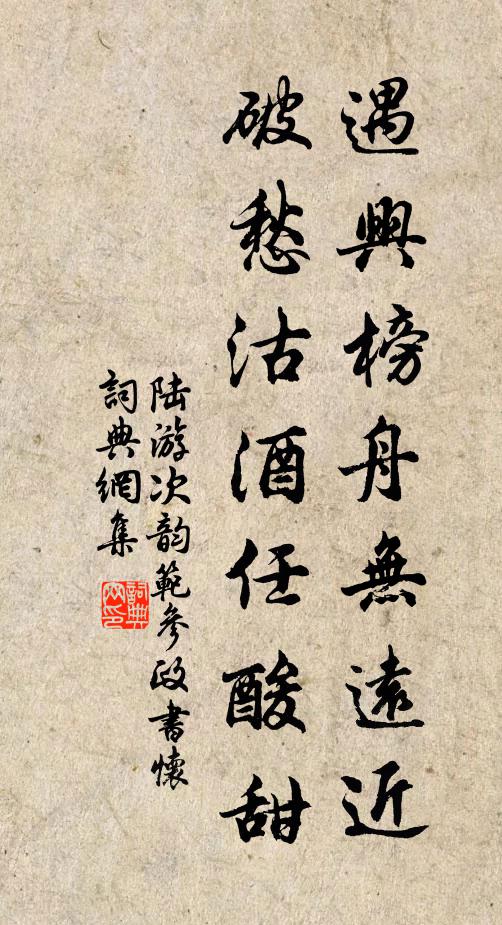 遇興榜舟無遠近
破愁沽酒任酸甜
陆游次韵範參政書懷
詞典網集
詞典
网印